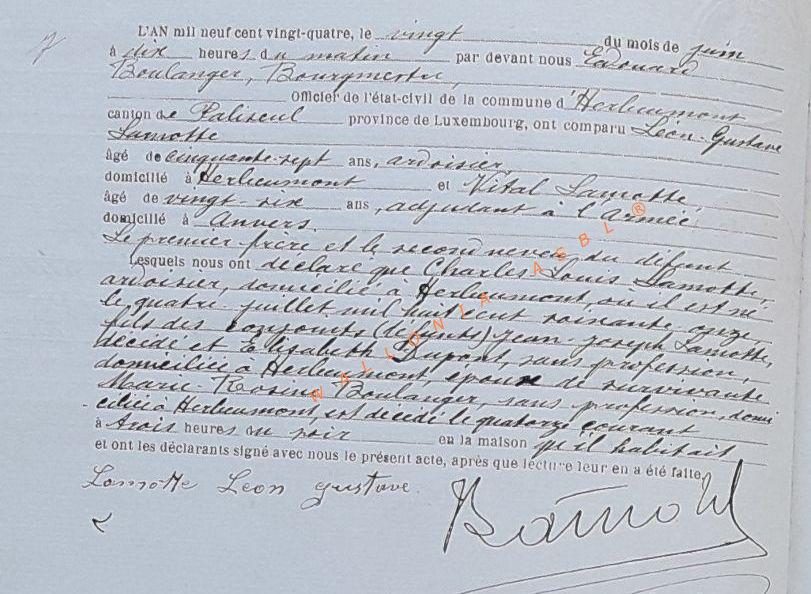 7
L'AN mil neuf cent vingt-quatre, le vingt du mois de juin
à dix heures du matin par devant nous Edouard
Boulanger, Bourgmestre,
Officier de l'état-civil de la commune d'Herbeumont
canton de Paliseul province de Luxembourg, ont comparu Léon-Gustave
Lamotte
âgé de cinquante-sept ans, ardoisier,
domicilié à Herbeumont et Vital Lamotte,
âgé de vingt-six ans, adjudant à l'Armée
domicilié à Anvers.
Le premier frère et le second neveu du défunt
Lesquels nous ont déclaré que Charles Louis Lamotte,
ardoisier, domicilié à Herbeumont, où il est né
le quatre juillet mil huit cent soixante onze,
fils des conjoints (défunts) Jean-Joseph Lamotte,
décédé et Elisabeth Dupont, sans profession,
domiciliée à Herbeumont, époux de survivante
Marie-Rosine Boulanger, sans profession, domi
ciliée à Herbeumont, est décédé le quatorze courant
à trois heures du soir en la maison qu'il habitait
et ont les déclarants signé avec nous le présent acte, après que lecture leur en a été faite.
Lamotte Leon gustave.
WALLONIA ASBL ®